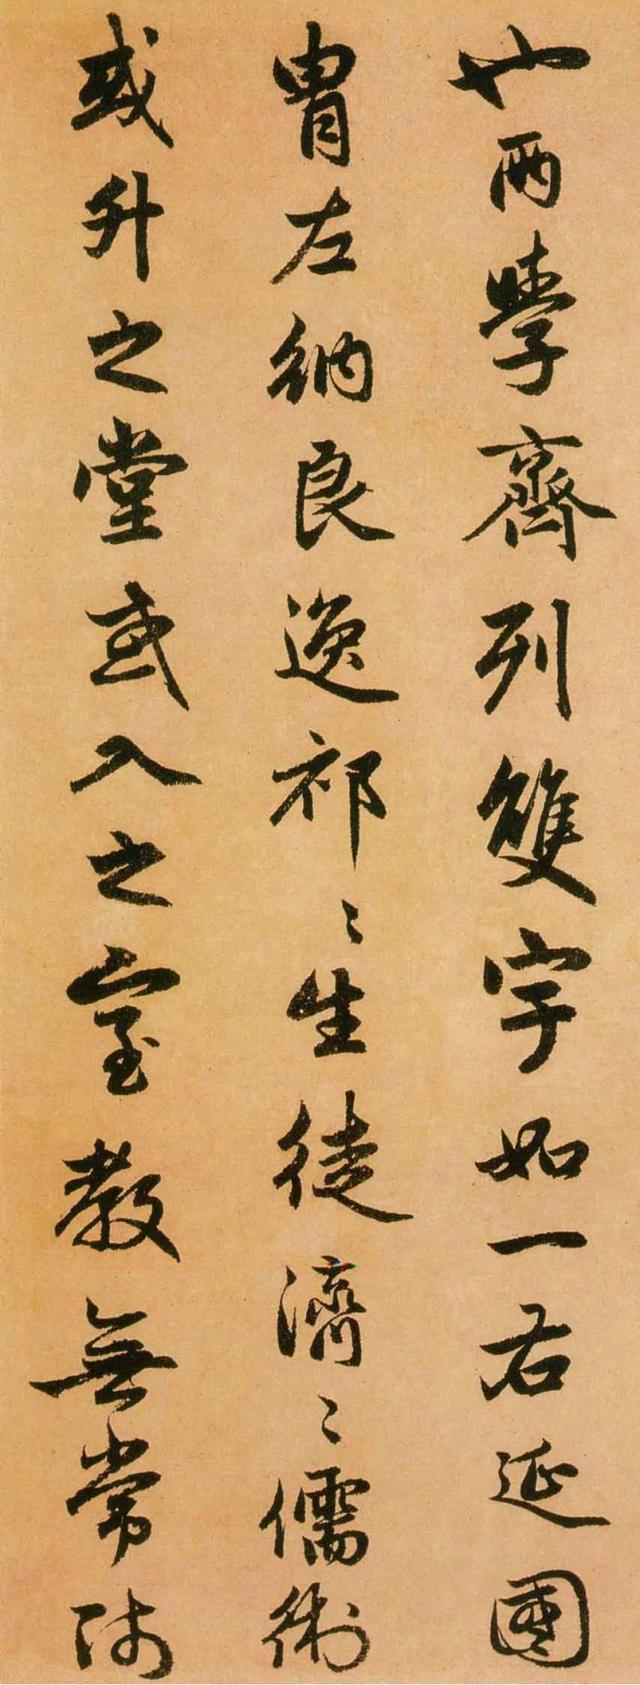 也兩學齊列雙宇如一右延國
胄左納良逸祁〻生徒濟〻儒術
或升之堂或入之室教無常師